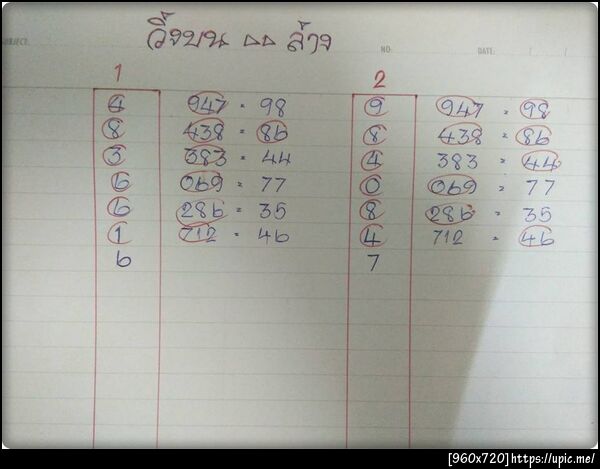 วิ่งบน ล่าง
SUBJECT. NO: DATE: / /
1 2
4 947 = 98 9 947 = 98
8 438 = 86 8 438 = 86
3 383 = 44 4 383 = 44
6 069 = 77 0 069 = 77
6 286 = 35 8 286 = 35
1 712 = 46 4 712 = 46
6 7
[960x720]https://upic.me/